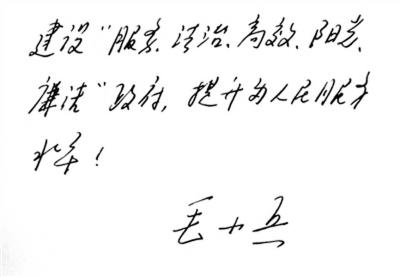 建设“服务、法治、高效、阳光、
廉洁”政府，提升为人民服务
水平！
毛小兵